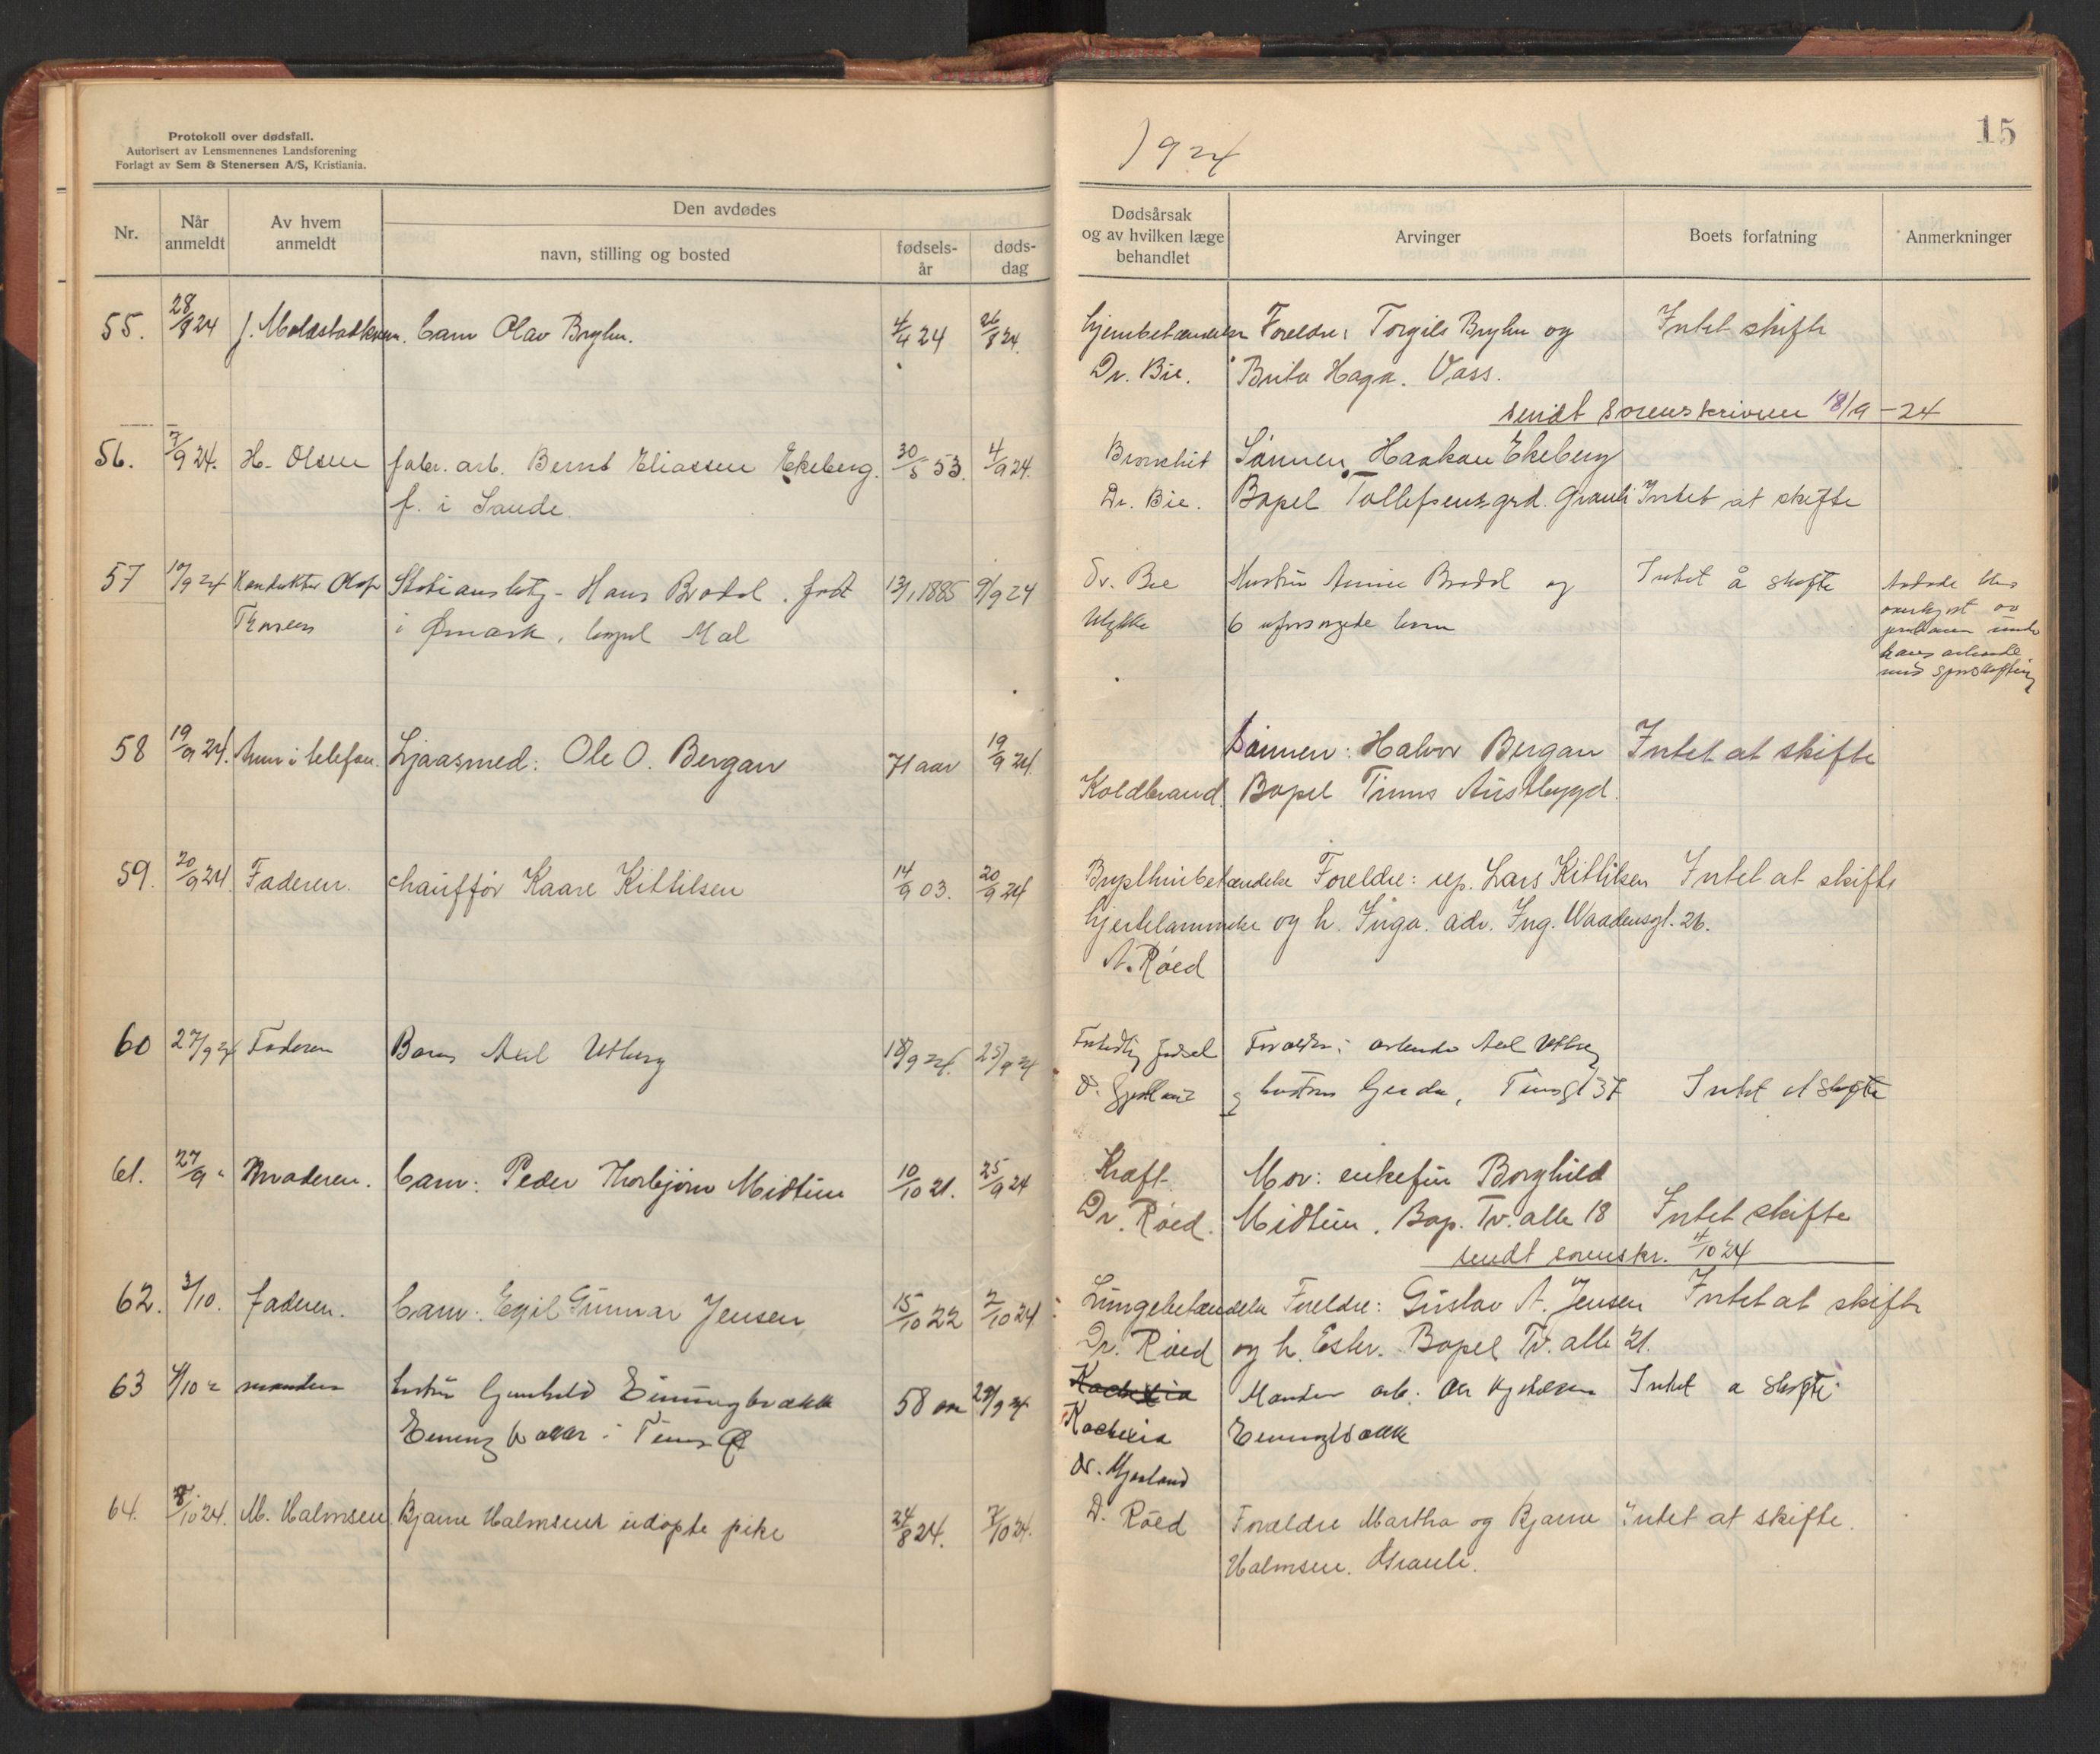 Protokoll over dødsfall.
Autorisert av Lensmennenes Landsforening
Forlagt av Sem & Stenersen A/S, Kristiania.
Nr.
Når anmeldt
Av hvem anmeldt
Den avdødes
navn, stilling og bosted
fødsels-år
døds-dag
55. 28/8 24 barn Olav Bryhn. 4/4 24 26/8 24.
56. 7/9 24. H. Olsen fabr. arb. Bernt Eliassen Ekeberg. 30/5 53. 4/9 24.
f. i Sande.
57 10/9 24 Konduktør Olaf Hans Bradal. født 13/1 1885 9/9 24
i Ømark, bopel Mæl
58 19/9 24. i telefon Ljaasmed: Ole O. Bergan 71 aar 19/9 24.
59. 20/9 24 Faderen. chauffør Kaare Kittilsen 14/9 03. 20/9 24
60 27/9 24 Faderen Barn 18/9 24. 25/9 24
61. 27/9 " Moderen. barn: Peder Thorbjørn Midtun 10/10 21. 25/9 24
62. 3/10. faderen. barn: Egil Gunnar Jensen 15/10 22 2/10 24
63 4/10 " manden hustru Gunhild 58 aar 29/9 24
64. 8/10 24. M. Halmsen Bjarne Halmsens udøpte pike 24/8 24. 7/10 24.
1924
15
Dødsårsak og av hvilken læge behandlet
Arvinger
Boets forfatning
Anmerkninger
hjernbetændelse Foreldre: Torgils Bryhn og Intet skifte
Dr. Bie. Brita Haga. Vass.
sendt sorenskriveren 18/9 - 24
Bronchit Sønnen Haakon Ekeberg
Dr. Bie. Bopel Tollefsensgrd. Grauli Intet at skifte
Dr. Bie Hustru Annie Bradal og Intet å skifte
Ulykke 6 uforsørgede barn
Avdøde blev
overkjørt av
under
hans arbeide
med
Sønnen: Halvor Bergan Intet at skifte
Koldbrand. Bopel Tinns Austbygd.
Brysthinbetændelse Foreldre: rep. Lars Kittilsen Intet at skifte
hjertelammelse og h. Inga. adr. Ing. Waadensgt. 26.
A. Røed
Fortidlig fødsel Foreldre: arbeider
Dr. Gjestland og hustru Gerda, Tinngt 37 Intet at skifte
Kræft. Mor: enkefru Borghild
Dr. Røed. Midtun. Bop. Tv. alle 18 Intet skifte
sendt sorenskr. 4/10 24
Lungebetændelse Foreldre: Gustav A. Jensen Intet at skifte
Dr. Røed og h. Ester. Bopel Tv. alle 21.
Kachexia Manden arb. Intet a skifte
Kachexia
Dr. Gjestland
D. Røed Foreldre Martha og Bjarne Intet at skifte.
Halmsen. Grauli.